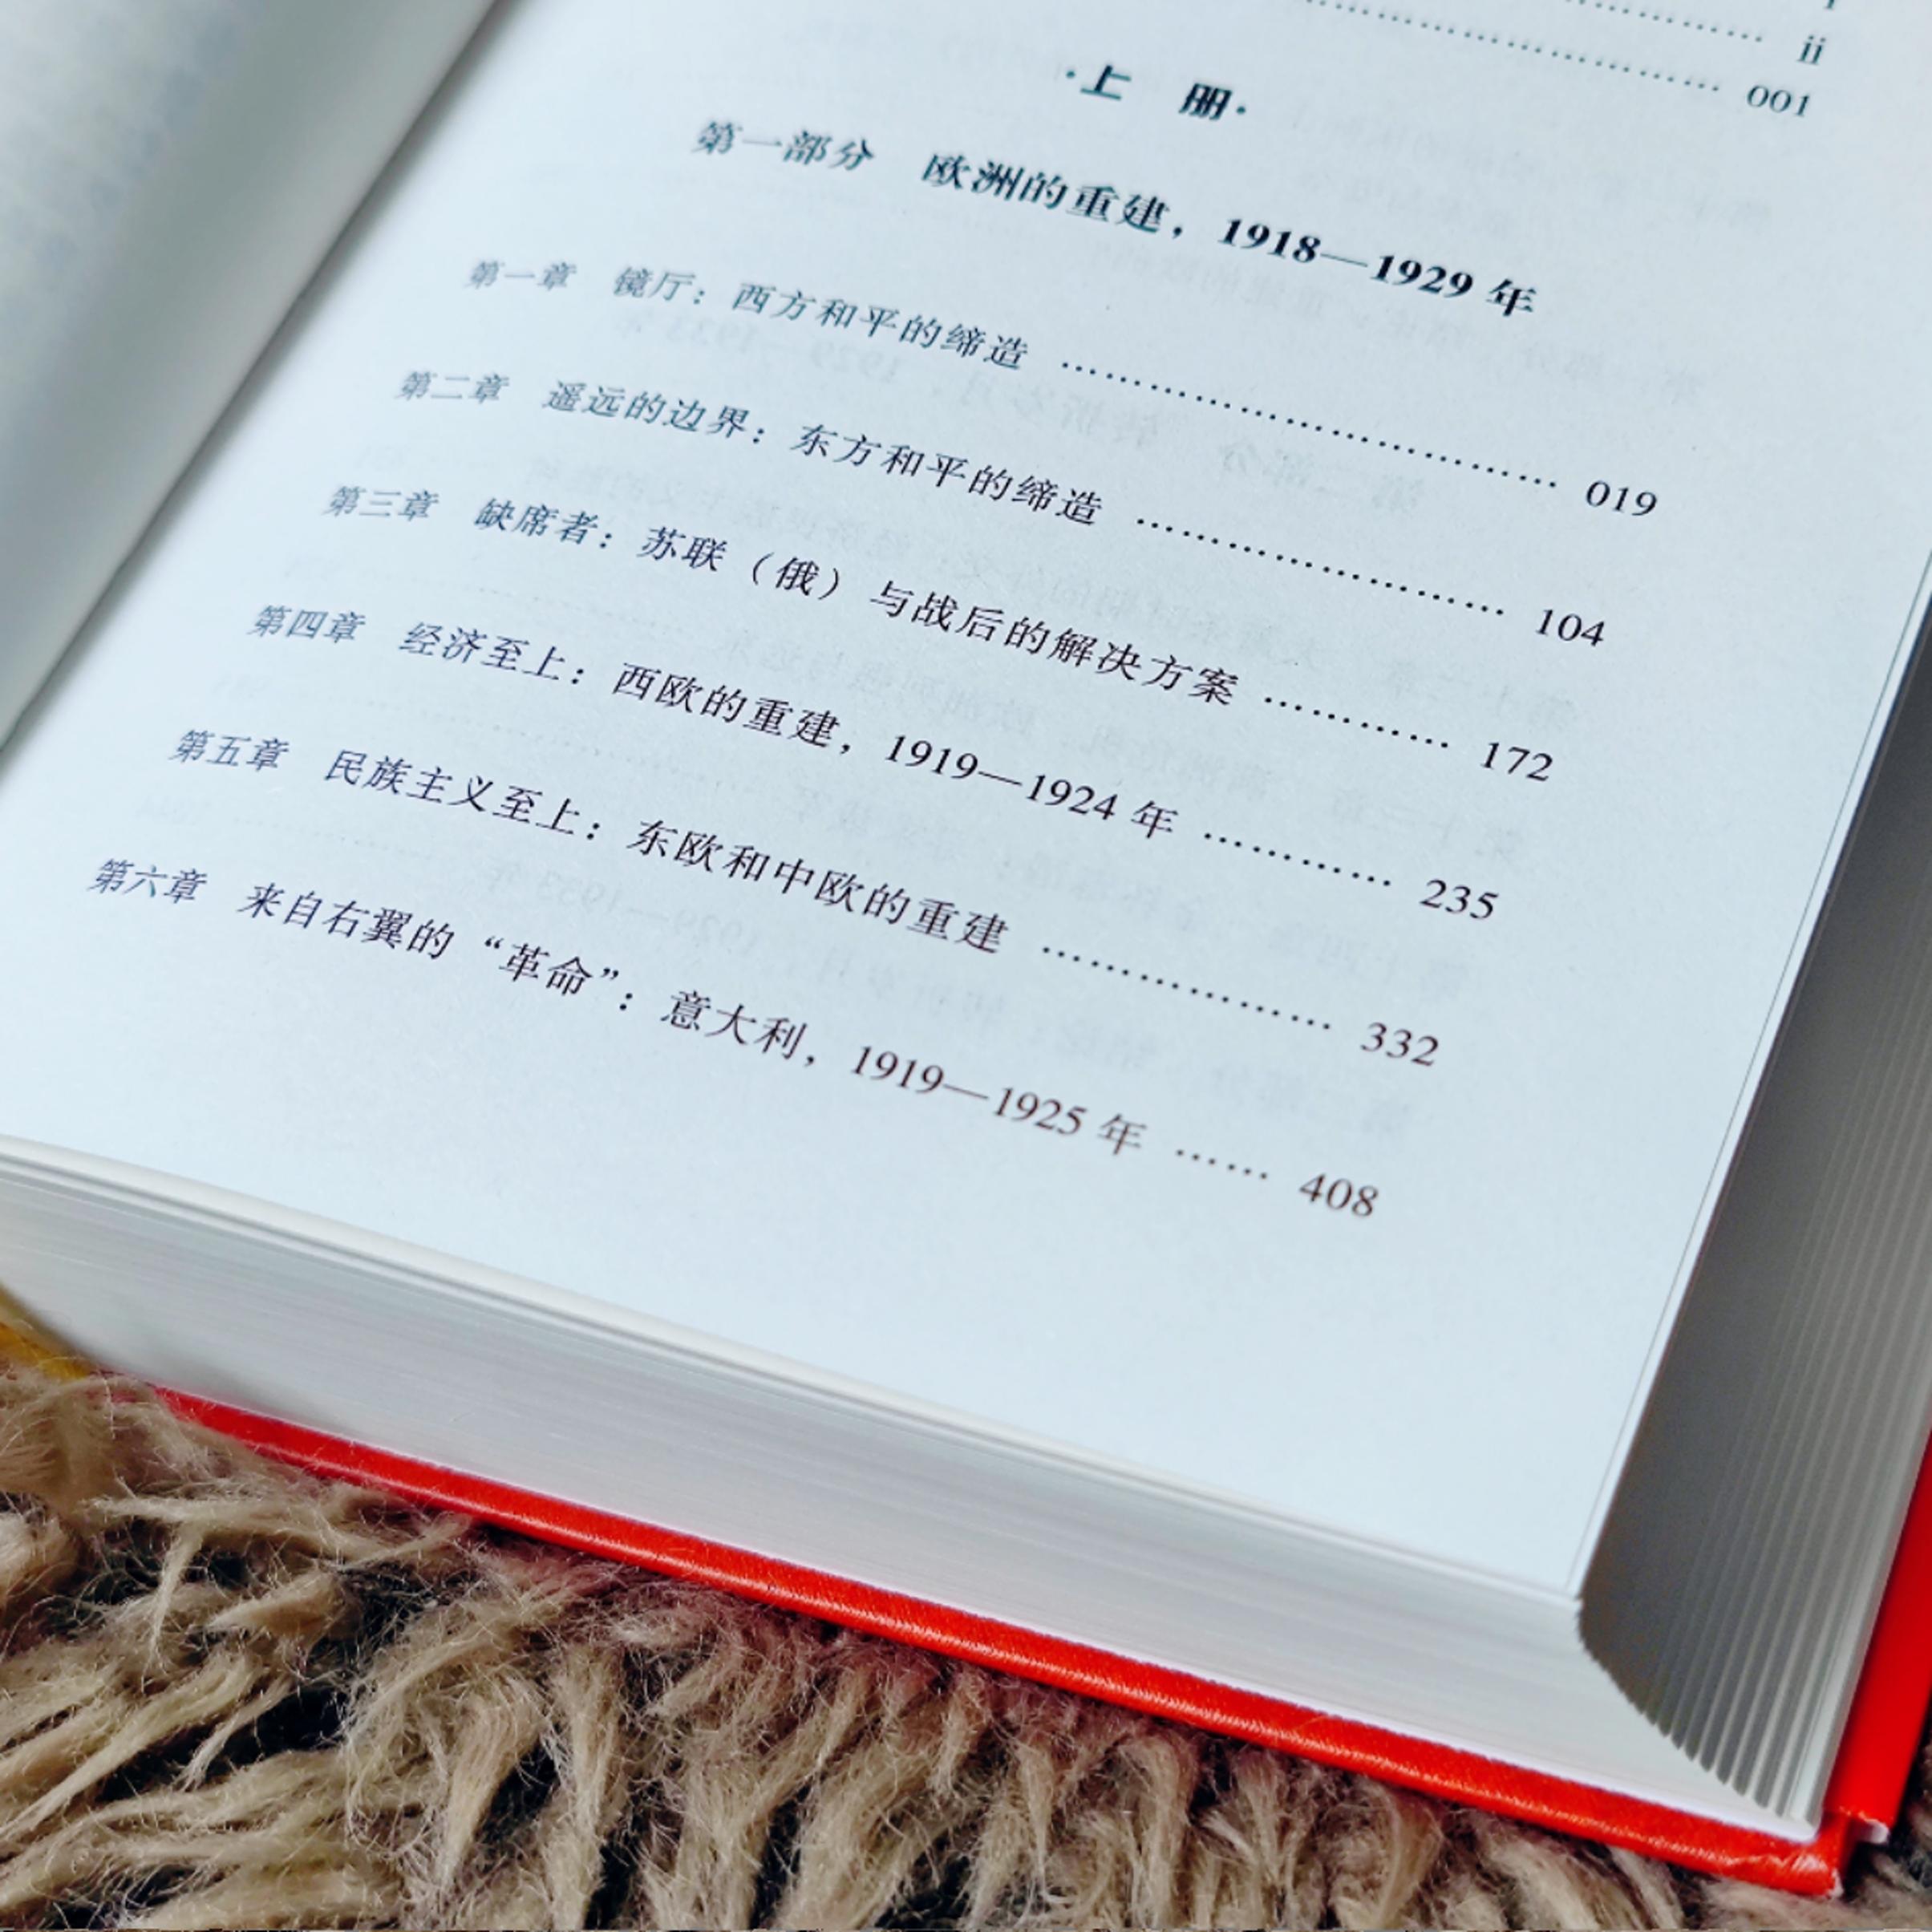 ………… ii
………… 001
·上 册·
第一部分 欧洲的重建，1918—1929 年
第一章 镜厅：西方和平的缔造 ………… 019
第二章 遥远的边界：东方和平的缔造 ………… 104
第三章 缺席者：苏联（俄）与战后的解决方案 ………… 172
第四章 经济至上：西欧的重建，1919—1924 年 ………… 235
第五章 民族主义至上：东欧和中欧的重建 ………… 332
第六章 来自右翼的“革命”：意大利，1919—1925 年 …… 408